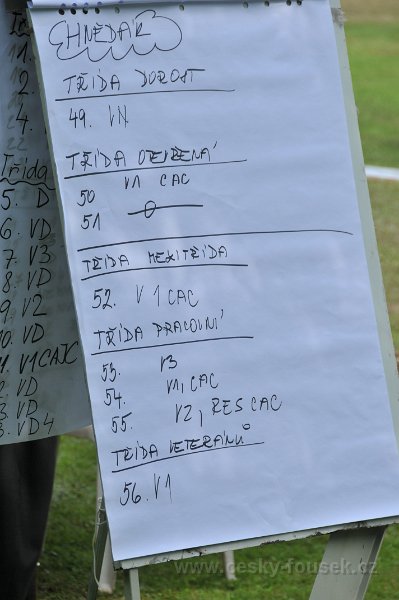 HNĚDÁK
TŘÍDA DOROST
49. VN
TŘÍDA OTEVŘENÁ
50 V1 CAC
51
TŘÍDA MEZITŘÍDA
52. V1 CAC
TŘÍDA PRACOVNÍ
53. V3
54. V1, CAC
55. V2, RES CAC
TŘÍDA VETERÁNŮ
56. V1
Třída
5. D
6. VD
7 V3
8 VD
9. V2
10. VD
11. V1 CAJC
VD
VD
VD4
www.cesky-fousek.cz